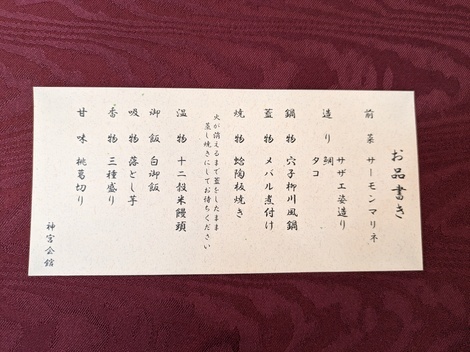 お品書き
前菜 サーモンマリネ
サザエ姿造り
造り 鯛
タコ
鍋物 穴子柳川風鍋
蓋物 メバル煮付け
焼物 蛤陶板焼き
火が消えるまで蓋をしたまま
蒸し焼きにしてお待ちください
温物 十二穀米饅頭
御飯 白御飯
吸物 落とし芋
香物 三種盛り
甘味 桃葛切り
神宮会館